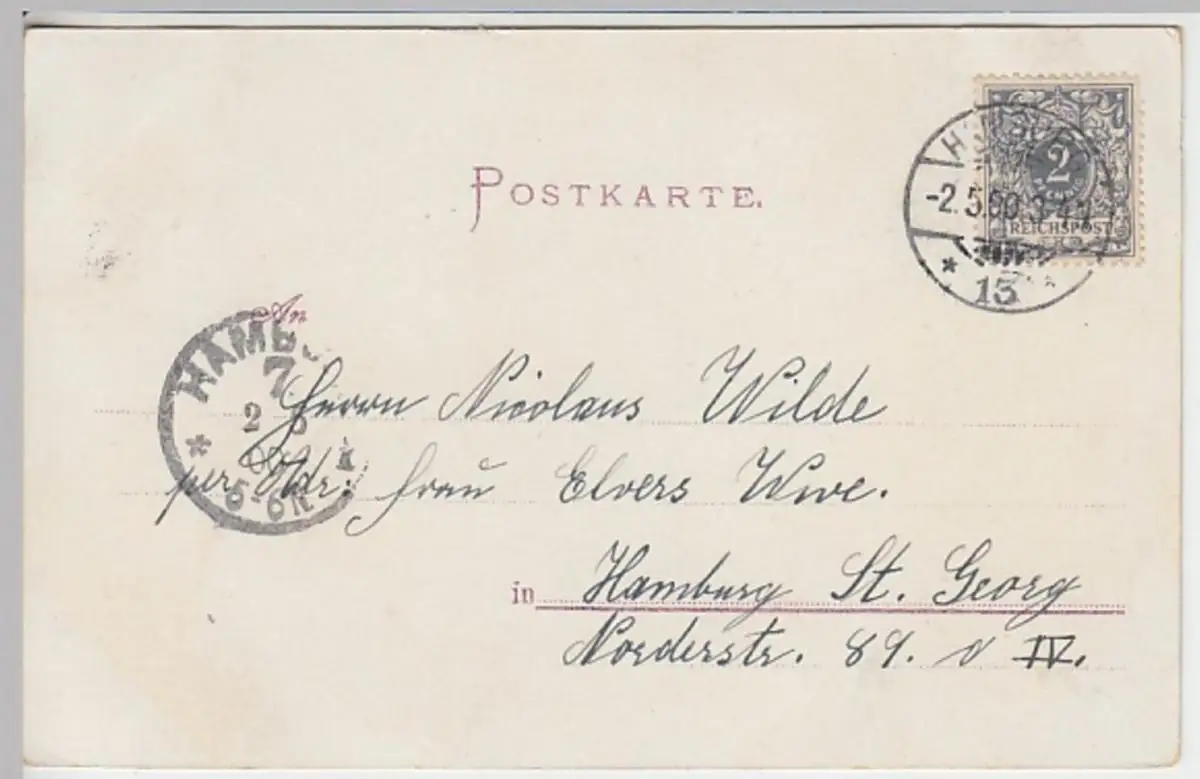 POSTKARTE.
2
PFENNIG
REICHSPOST
HAMBURG
-2.5.00.3-4N
* 13 *
An
HAMBU
7
2 5
00
5-6N
Herrn Nicolaus Wilde
per Adr: Frau Elvers Wwe.
in Hamburg St. Georg
Norderstr. 89. IV.